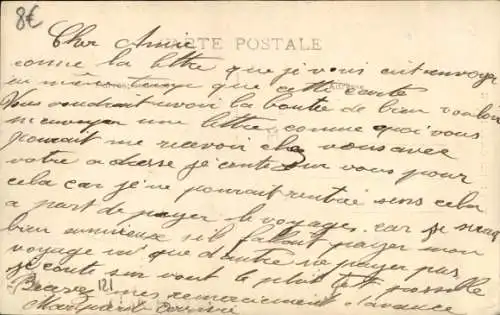 8€
Cher Amie
CARTE POSTALE
comme la lettre que je vous ait envoyer
en même temps que cette carte
Vous voudrait avoir la bonté de bien vouloir
m envoyer une lettre comme quoi vous
pourait me recevoir chez vous avec
votre adresse je conte sur vous pour
cela car je ne pourait rentrée sens cela
a part de payer le voyages car je serai
bien ennuieux s'il fallait payer mon
voyage m' que d'autre ne payer pas
je conte sur vout le plus tôt possible
121 mes remerciement d'avance